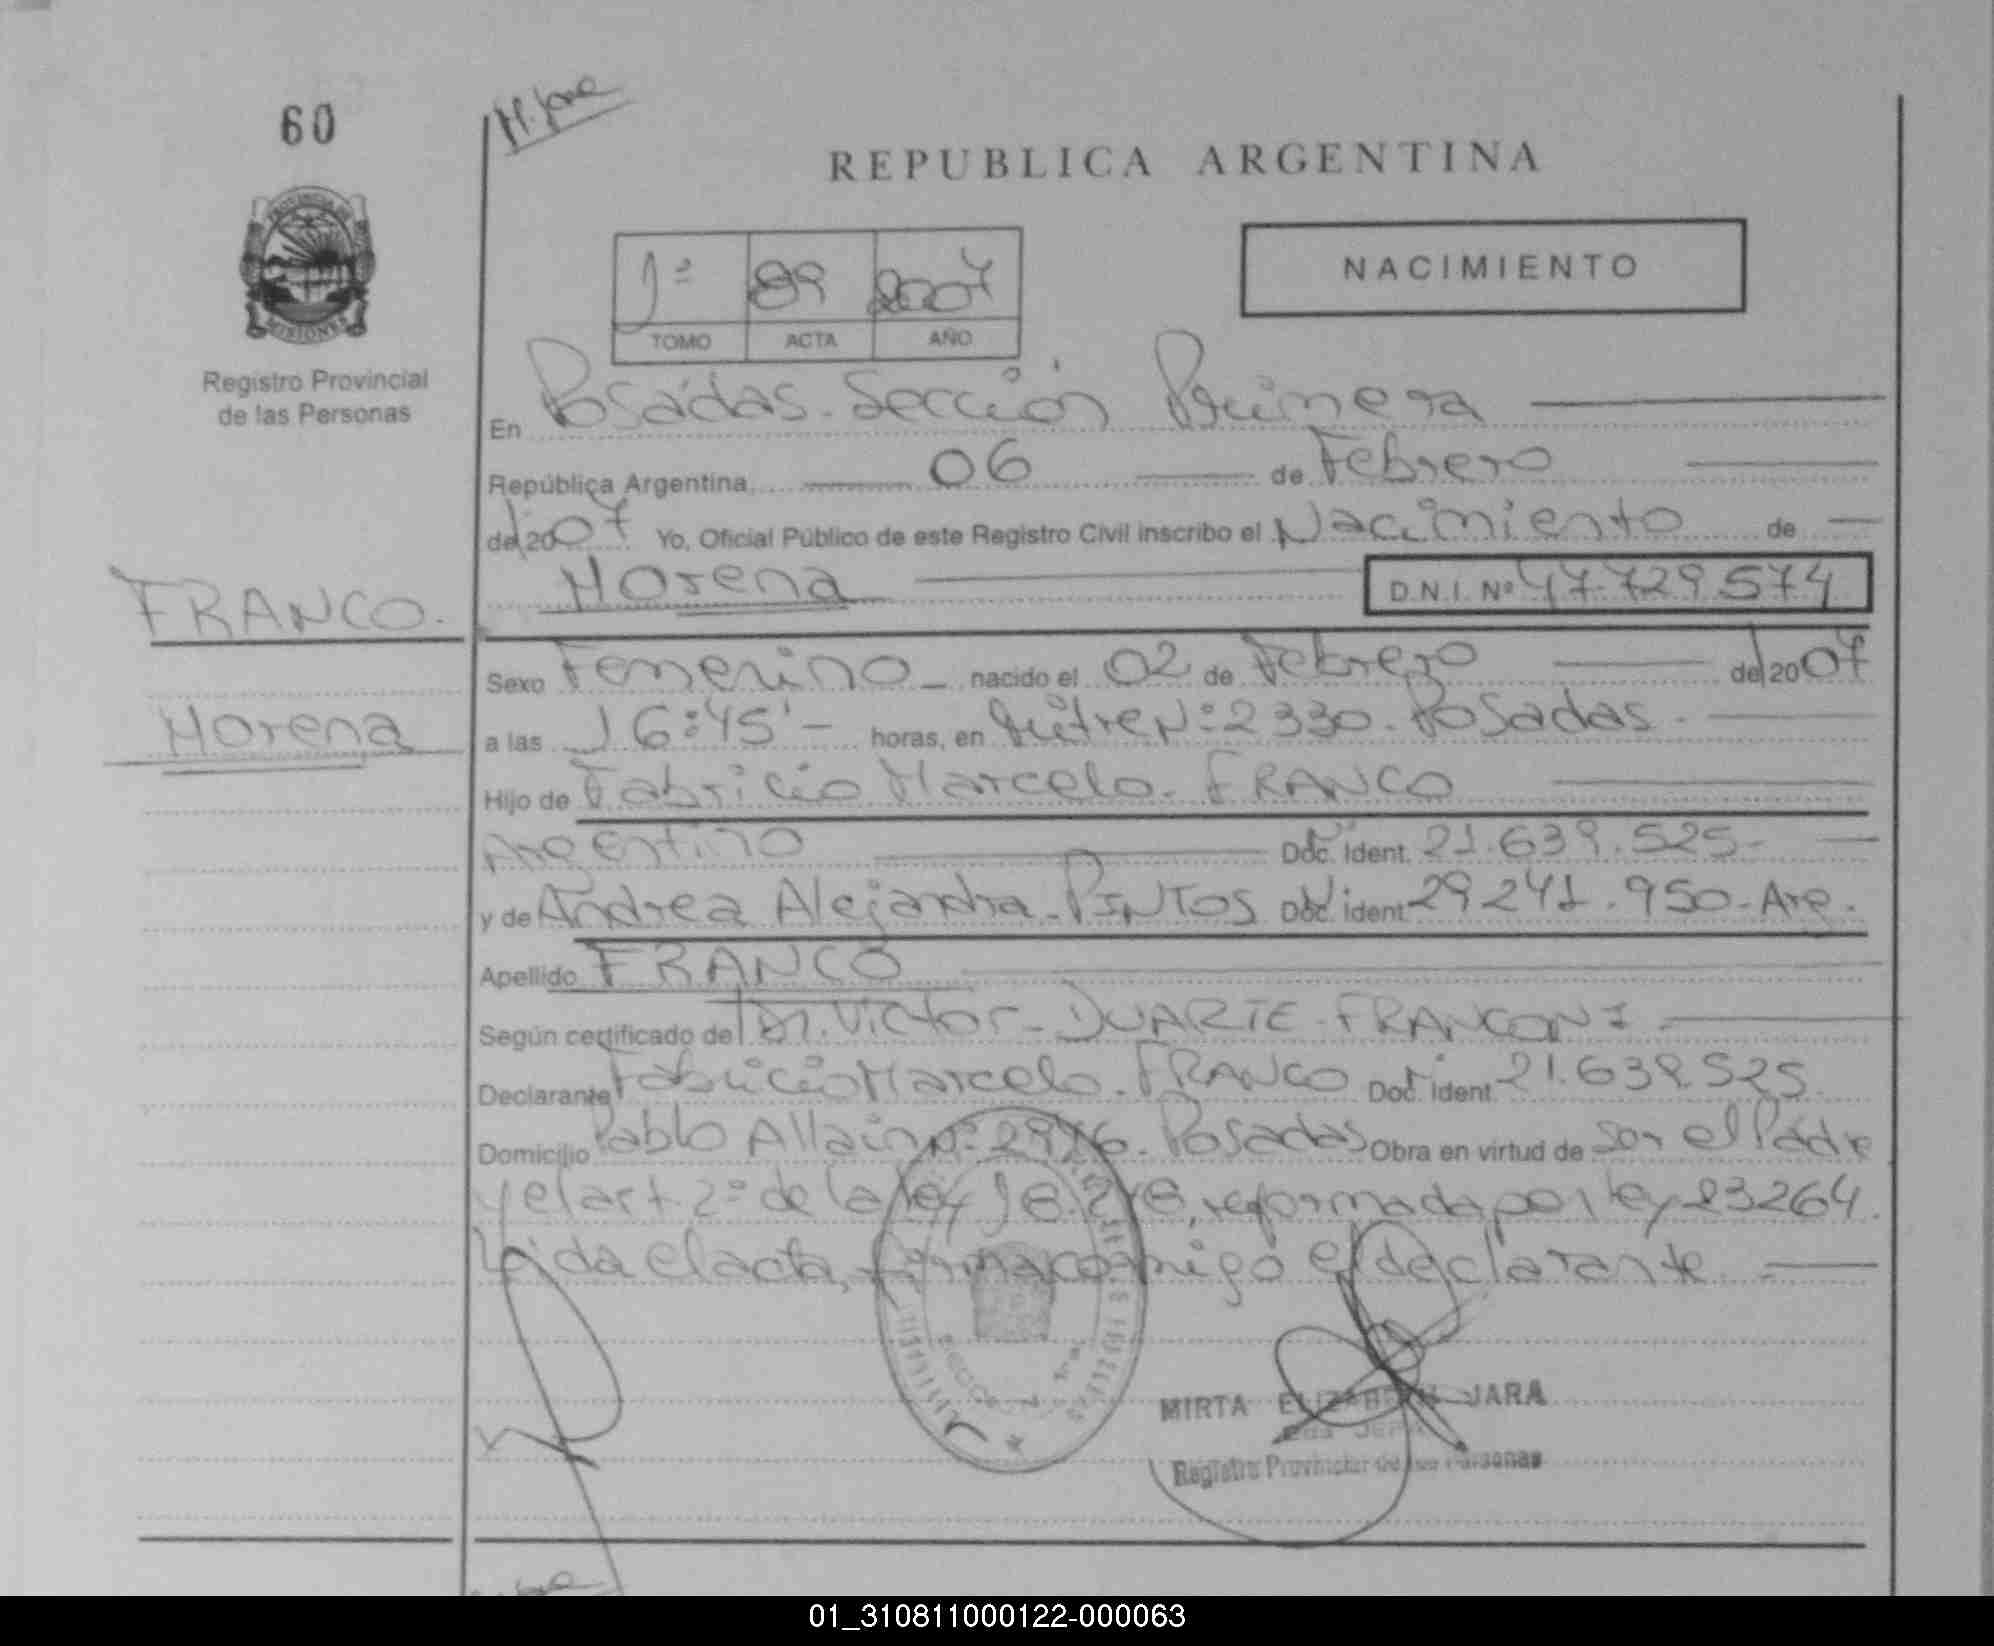 60
M. Jara
REPUBLICA ARGENTINA
PROVINCIA DE
MISIONES
Registro Provincial
de las Personas
1º 89 2007
TOMO ACTA AÑO
NACIMIENTO
En Posadas. Sección Primera
República Argentina, 06 de Febrero
del 2007 Yo, Oficial Público de este Registro Civil inscribo el Nacimiento de
Morena D.N.I. Nº 47.729.574
FRANCO.
Morena
Sexo Femenino nacido el 02 de Febrero del 2007
a las 16:45' horas, en Mitre Nº: 2330. Posadas.
Hijo de Fabricio Marcelo. FRANCO
Argentino Doc. Ident. 21.639.525-
y de Andrea Alejandra. PINTOS Doc. ident. 29.241.950- Arg.
Apellido FRANCO
Según certificado del Dr. Victor - DUARTE - FRANCONI
Declarante Fabricio Marcelo. FRANCO Doc. Ident. 21.639.525.
Domicilio Pablo Allain Nº: 2976. Posadas Obra en virtud de ser el Padre
y el art. 2º de la ley 18.248, reformada por ley 23264.
Leída el acta, firma conmigo el declarante
MIRTA ELIZABETH JARA
Registro Provincial de las Personas
01_310811000122-000063